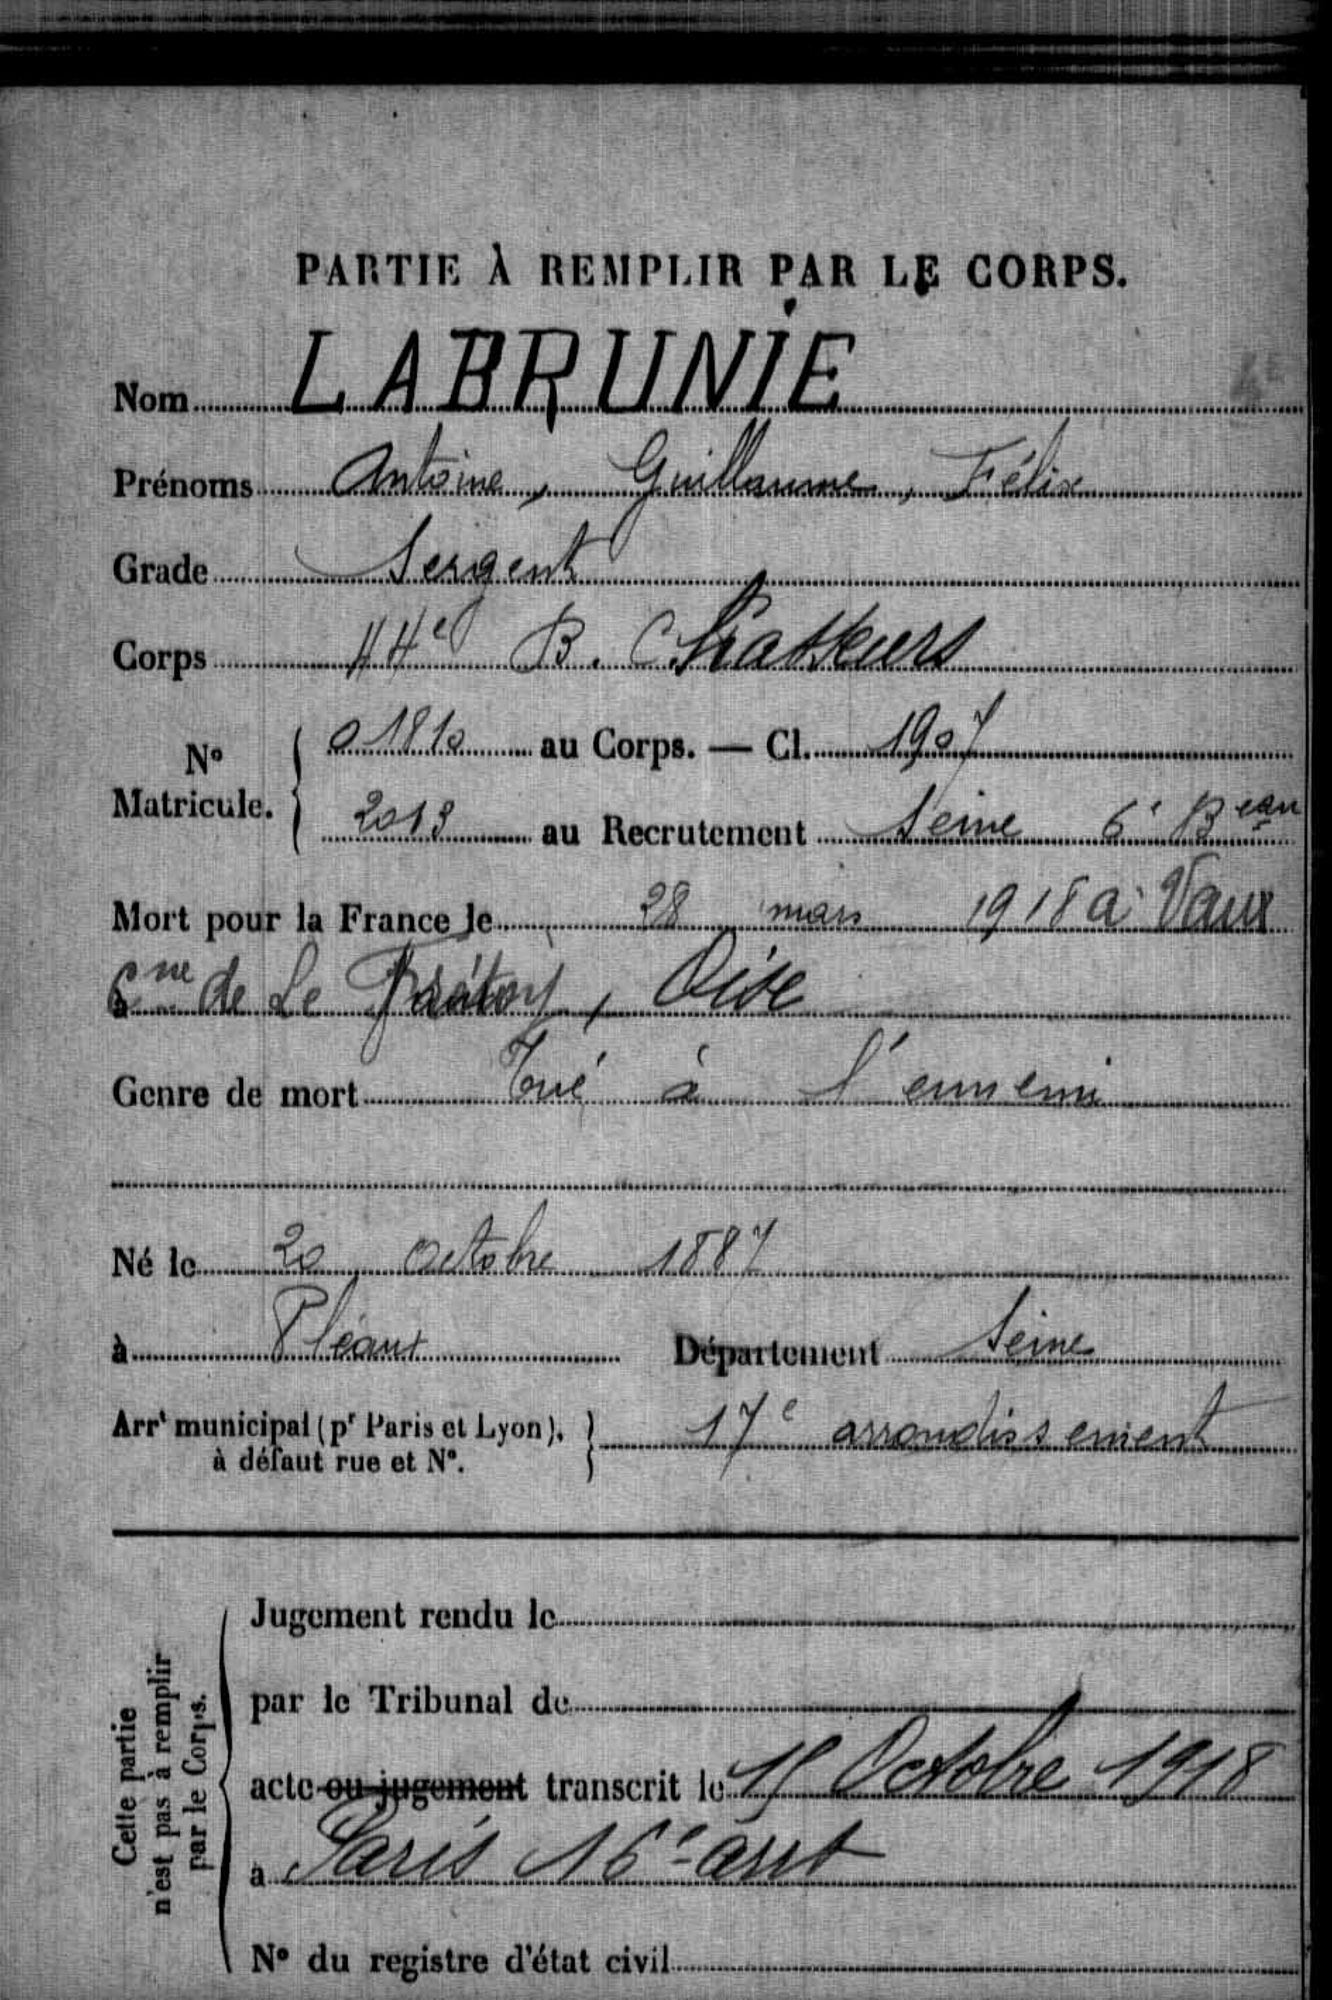 PARTIE À REMPLIR PAR LE CORPS.
Nom LABRUNIE
Prénoms Antoine, Guillaume, Félix
Grade Sergent
Corps 44e B. Chasseurs
No Matricule. 01810 au Corps. — Cl. 1907
2013 au Recrutement Seine 6e Beau
Mort pour la France le 28 mars 1918 à Vaux
à Cne de Le Frétoy, Oise
Genre de mort Tué à l'ennemi
Né le 20 octobre 1887
à Pléaux Département Seine
Arrt municipal (pr Paris et Lyon), à défaut rue et No. 17e arrondissement
Cette partie n'est pas à remplir par le Corps.
Jugement rendu le
par le Tribunal de
acte ou jugement transcrit le 15 Octobre 1918
à Paris 16e arrt
No du registre d'état civil